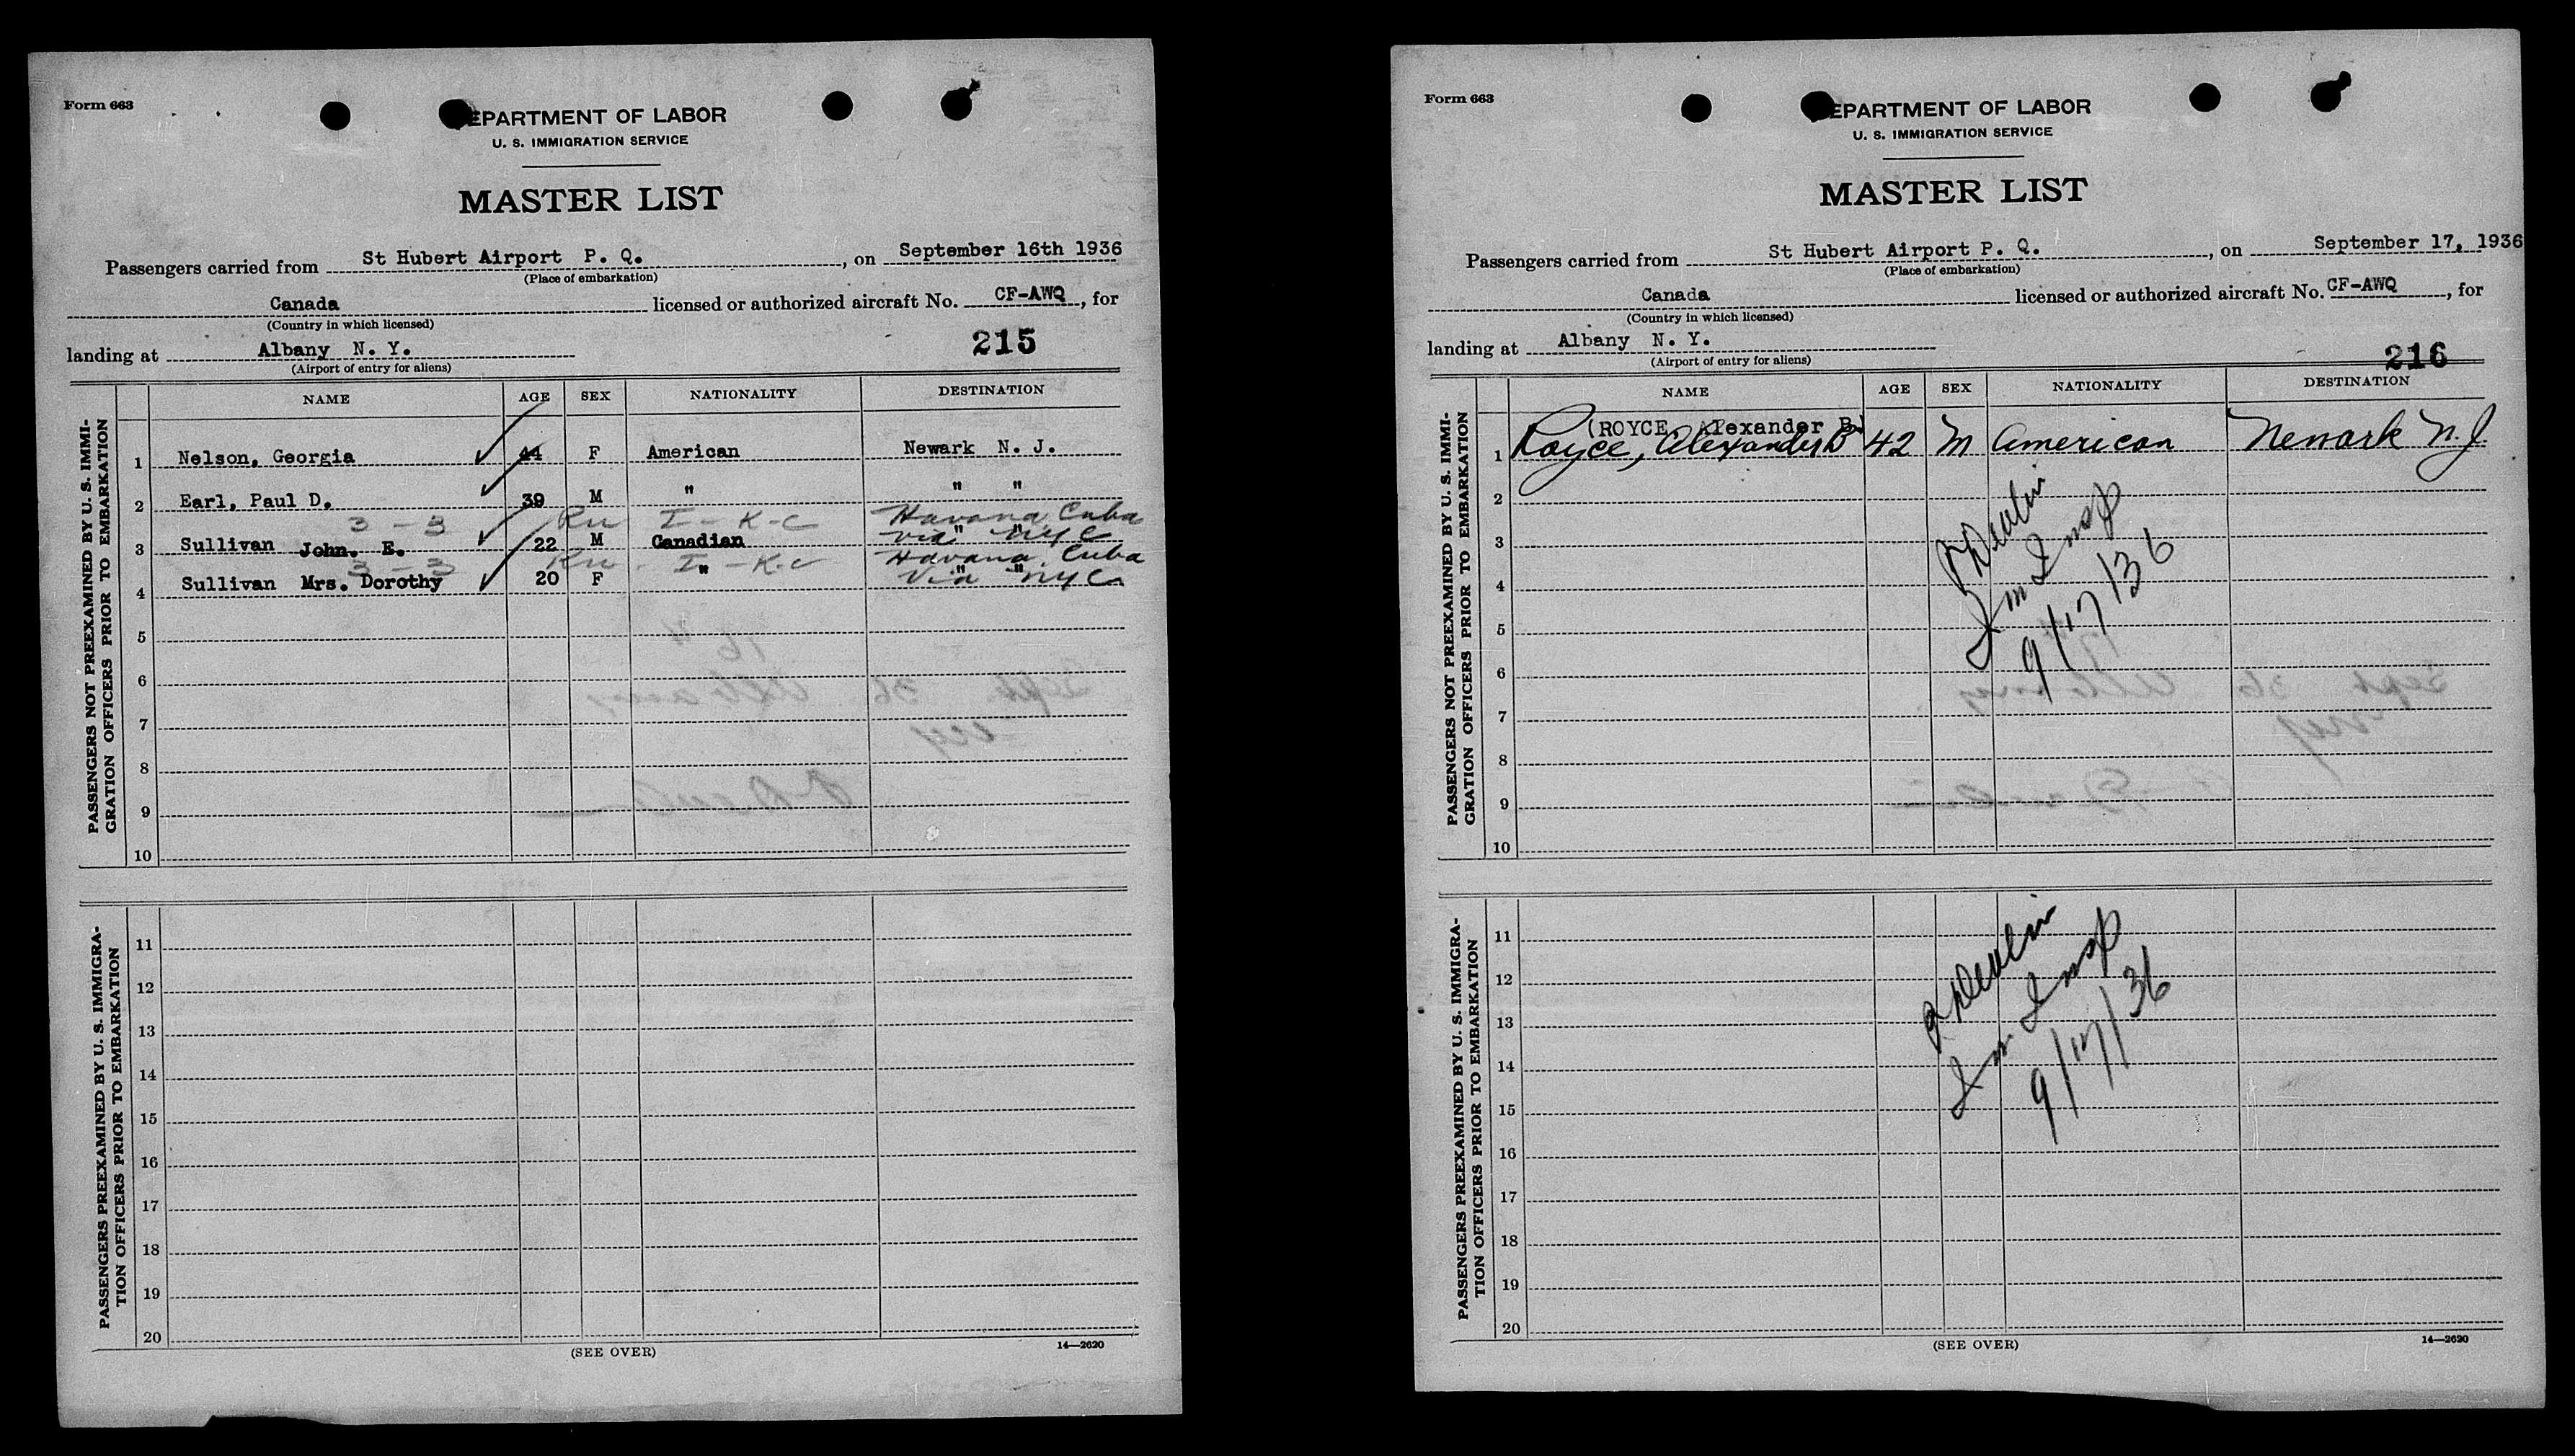 Form 663
DEPARTMENT OF LABOR
U. S. IMMIGRATION SERVICE
MASTER LIST
Passengers carried from St Hubert Airport P. Q., on September 16th 1936
(Place of embarkation)
Canada licensed or authorized aircraft No. CF-AWQ, for
(Country in which licensed)
215
landing at Albany N. Y.
(Airport of entry for aliens)
NAME AGE SEX NATIONALITY DESTINATION
PASSENGERS NOT PREEXAMINED BY U. S. IMMI-
GRATION OFFICERS PRIOR TO EMBARKATION
1 Nelson, Georgia 44 F American Newark N. J.
2 Earl, Paul D. 39 M " " "
3 - 3 I - K-C Havana, Cuba
3 Sullivan John. E. 22 M Canadian " "
via NYC
3 - 3 I - K-C Havana, Cuba
4 Sullivan Mrs. Dorothy 20 F " " "
Via NYC
5
6
7
8
9
10
PASSENGERS PREEXAMINED BY U. S. IMMIGRA-
TION OFFICERS PRIOR TO EMBARKATION
11
12
13
14
15
16
17
18
19
20
(SEE OVER) 14—2620
Form 663
DEPARTMENT OF LABOR
U. S. IMMIGRATION SERVICE
MASTER LIST
Passengers carried from St Hubert Airport P. Q., on September 17, 1936
(Place of embarkation)
Canada licensed or authorized aircraft No. CF-AWQ, for
(Country in which licensed)
landing at Albany N. Y.
(Airport of entry for aliens)
216
NAME AGE SEX NATIONALITY DESTINATION
PASSENGERS NOT PREEXAMINED BY U. S. IMMI-
GRATION OFFICERS PRIOR TO EMBARKATION
(ROYCE, Alexander B)
1 Royce, Alexander B 42 M American Newark N.J.
2
3
4
5
6
7
8
9
10
Devlin
Im Insp
9/17/36
PASSENGERS PREEXAMINED BY U. S. IMMIGRA-
TION OFFICERS PRIOR TO EMBARKATION
11
12
13
14
15
16
17
18
19
20
Devlin
Im Insp
9/17/36
(SEE OVER) 14—2620